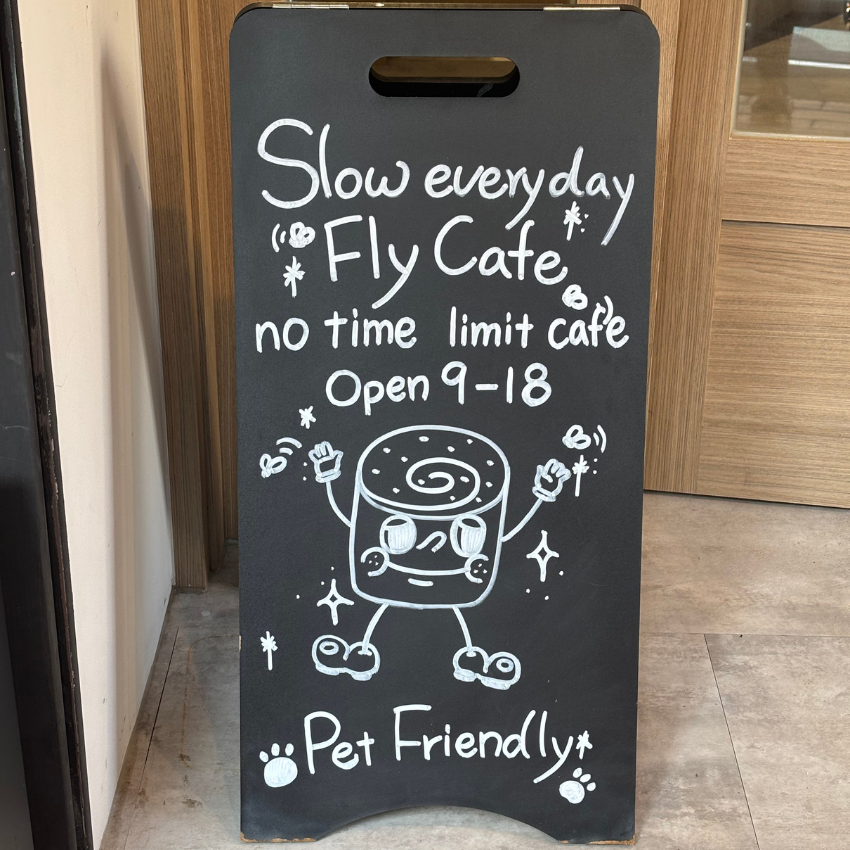 Slow everyday
Fly Cafe
no time limit cafe
Open 9-18
Pet Friendly